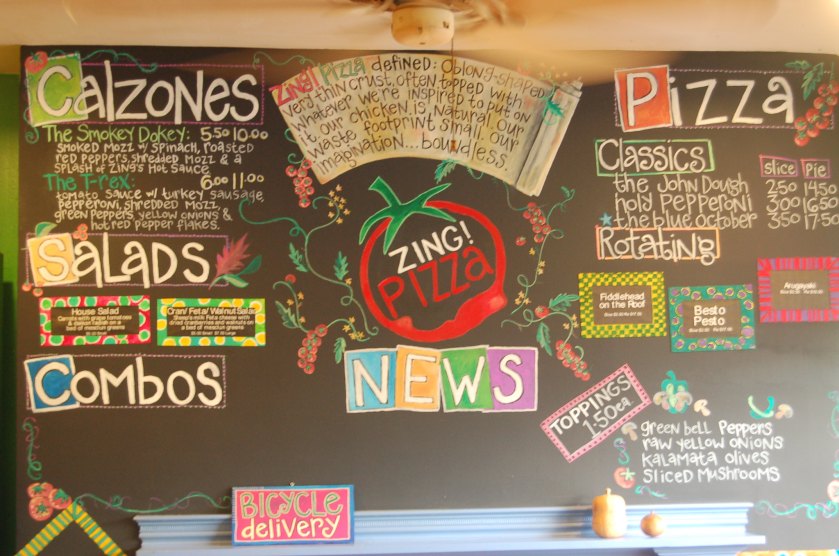 Calzones
The Smokey Dokey: 5.50 10.00
smoked mozz w/ spinach, roasted
red peppers, shredded mozz & a
splash of Zing's Hot Sauce
The T-rex: 6.00 11.00
tomato sauce w/ turkey sausage,
pepperoni, shredded mozz,
green peppers, yellow onions &
hot red pepper flakes.
Salads
House Salad
Carrots with grape tomatoes
on a
bed of mesclun greens
Cran/ Feta/ Walnut Salad
Sheep's milk Feta cheese with
dried cranberries and walnuts on
a bed of mesclun greens
Combos
Zing! Pizza defined: Oblong-shaped
very thin crust, often topped with
whatever we're inspired to put on
it. Our chicken is natural. Our
waste footprint small. Our
imagination... boundless.
ZING!
Pizza
NEWS
Pizza
Classics
slice Pie
the John Dough 2.50 14.50
holy Pepperoni 3.00 16.50
the blue october 3.50 17.50
Rotating
Fiddlehead
on the Roof
Besto
Pesto
Arugayaki
TOPPINGS
1.50 ea.
green bell Peppers
raw yellow onions
kalamata olives
sliced mushrooms
Bicycle
delivery